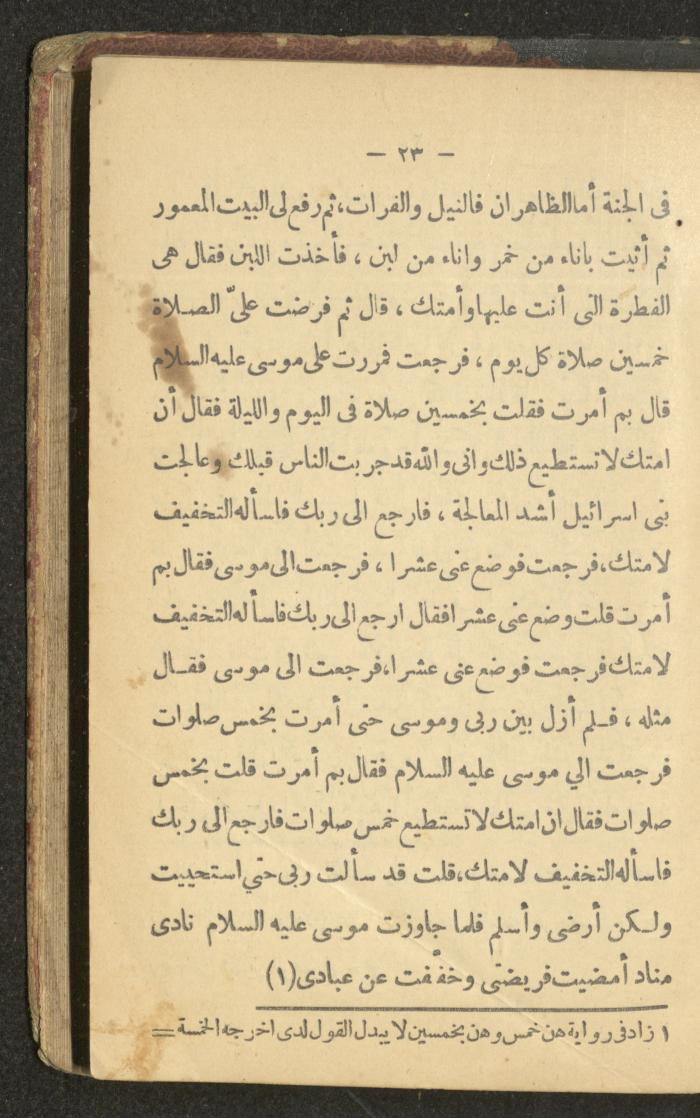 — ٢٣ —
فى الجنة أماالظاهران فالنيل والفرات،ثم رفع لى البيت المعمور
ثم أتيت باناء من خمر واناء من لبن ، فأخذت اللبن فقال هى
الفطرة التى أنت عليها وأمتك ، قال ثم فرضت علىّ الصلاة
خمسين صلاة كل يوم ، فرجعت فمررت على موسى عليه السلام
قال بم أمرت فقلت بخمسين صلاة فى اليوم والليلة فقال أن
امتك لا تستطيع ذلك وانى والله قد جربت الناس قبلك وعالجت
بنى اسرائيل أشد المعالجة ، فارجع الى ربك فاسأله التخفيف
لامتك،فرجعت فوضع عنى عشرا ، فرجعت الى موسى فقال بم
أمرت قلت وضع عنى عشرا فقال ارجع الى ربك فاسأله التخفيف
لامتك فرجعت فوضع عنى عشرا،فرجعت الى موسى فقال
مثله ، فلم أزل بين ربى وموسى حتى أمرت بخمس صلوات
فرجعت الي موسى عليه السلام فقال بم أمرت قلت بخمس
صلوات فقال ان امتك لا تستطيع خمس صلوات فارجع الى ربك
فاسأله التخفيف لامتك،قلت قد سألت ربى حتي استحييت
ولكن أرضى وأسلم فلما جاوزت موسى عليه السلام نادى
مناد أمضيت فريضتى وخفّفت عن عبادى (١)
١ زاد فى رواية هن خمس وهن بخمسين لا يبدل القول لدى اخرجه الخمسة =